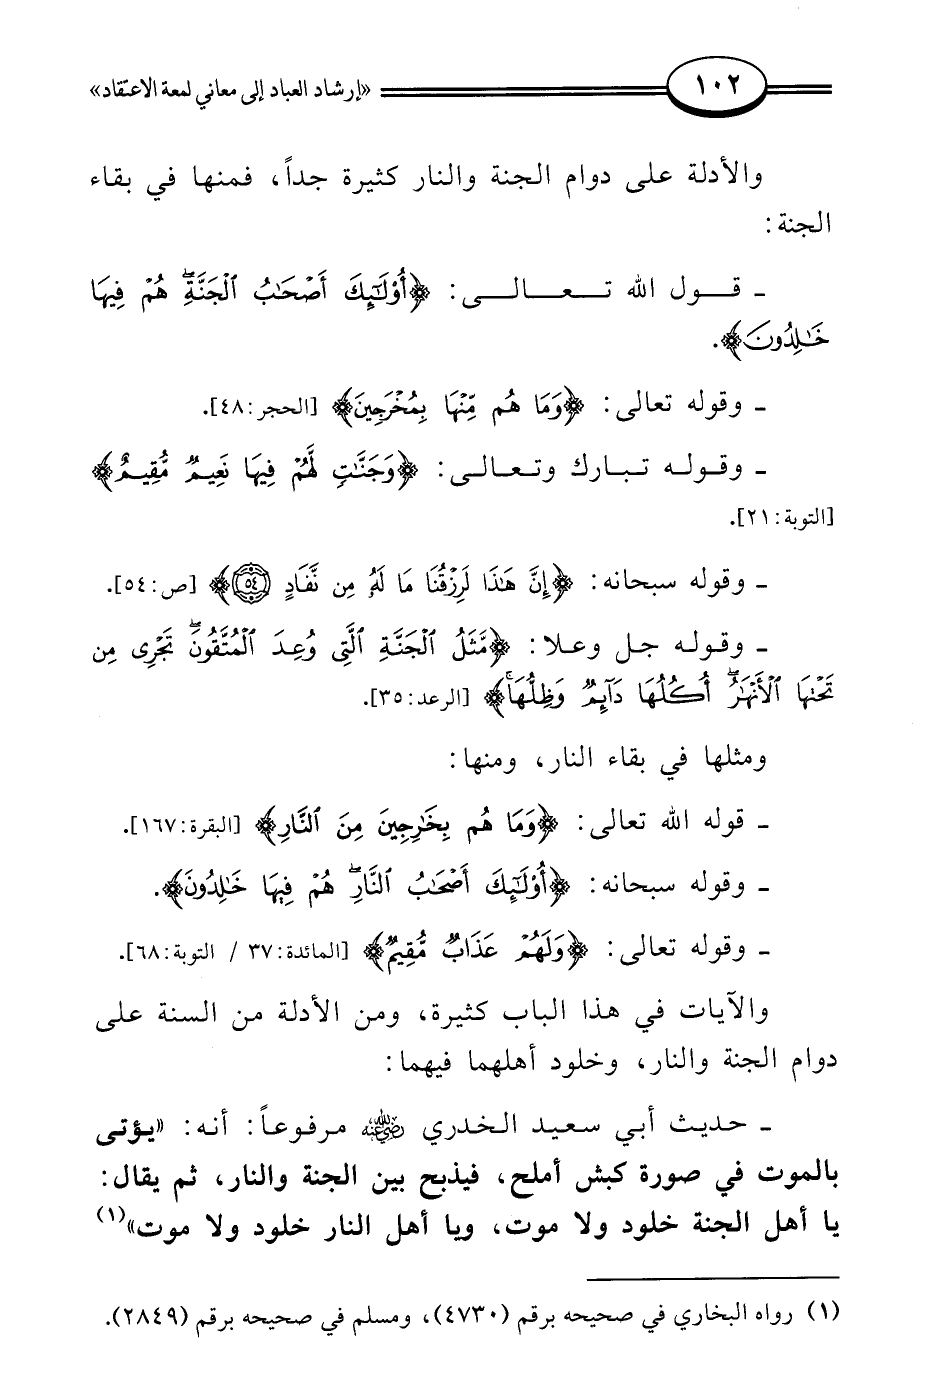 ١٠٢ «إرشاد العباد إلى معاني لمعة الاعتقاد»
والأدلة على دوام الجنة والنار كثيرة جداً، فمنها في بقاء
الجنة:
ـ قول الله تعالى: ﴿أُوْلَٰٓئِكَ أَصْحَٰبُ ٱلْجَنَّةِۖ هُمْ فِيهَا
خَٰلِدُونَ﴾.
ـ وقوله تعالى: ﴿وَمَا هُم مِّنْهَا بِمُخْرَجِينَ﴾ [الحجر:٤٨].
ـ وقوله تبارك وتعالى: ﴿وَجَنَّٰتٍ لَّهُمْ فِيهَا نَعِيمٌ مُّقِيمٌ﴾
[التوبة:٢١].
ـ وقوله سبحانه: ﴿إِنَّ هَٰذَا لَرِزْقُنَا مَا لَهُۥ مِن نَّفَادٍ ٥٤﴾ [ص:٥٤].
ـ وقوله جل وعلا: ﴿مَّثَلُ ٱلْجَنَّةِ ٱلَّتِى وُعِدَ ٱلْمُتَّقُونَۖ تَجْرِى مِن
تَحْتِهَا ٱلْأَنْهَٰرُۖ أُكُلُهَا دَآئِمٌ وَظِلُّهَاۚ﴾ [الرعد:٣٥].
ومثلها في بقاء النار، ومنها:
ـ قوله الله تعالى: ﴿وَمَا هُم بِخَٰرِجِينَ مِنَ ٱلنَّارِ﴾ [البقرة:١٦٧].
ـ وقوله سبحانه: ﴿أُوْلَٰٓئِكَ أَصْحَٰبُ ٱلنَّارِۖ هُمْ فِيهَا خَٰلِدُونَ﴾.
ـ وقوله تعالى: ﴿وَلَهُمْ عَذَابٌ مُّقِيمٌ﴾ [المائدة:٣٧ / التوبة:٦٨].
والآيات في هذا الباب كثيرة، ومن الأدلة من السنة على
دوام الجنة والنار، وخلود أهلهما فيهما:
ـ حديث أبي سعيد الخدري رضي الله عنه مرفوعاً: أنه: «يؤتى
بالموت في صورة كبش أملح، فيذبح بين الجنة والنار، ثم يقال:
يا أهل الجنة خلود ولا موت، ويا أهل النار خلود ولا موت»(١)
(١) رواه البخاري في صحيحه برقم (٤٧٣٠)، ومسلم في صحيحه برقم (٢٨٤٩).